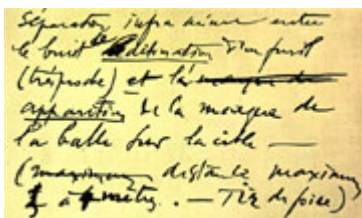 Séparation infra mince entre
le bruit de détonation d'un fusil
(très proche) et la marque de
apparition de la marque de
la balle sur la cible —
(maximum distance maximum
à 4 mètres. — Tir de foire)